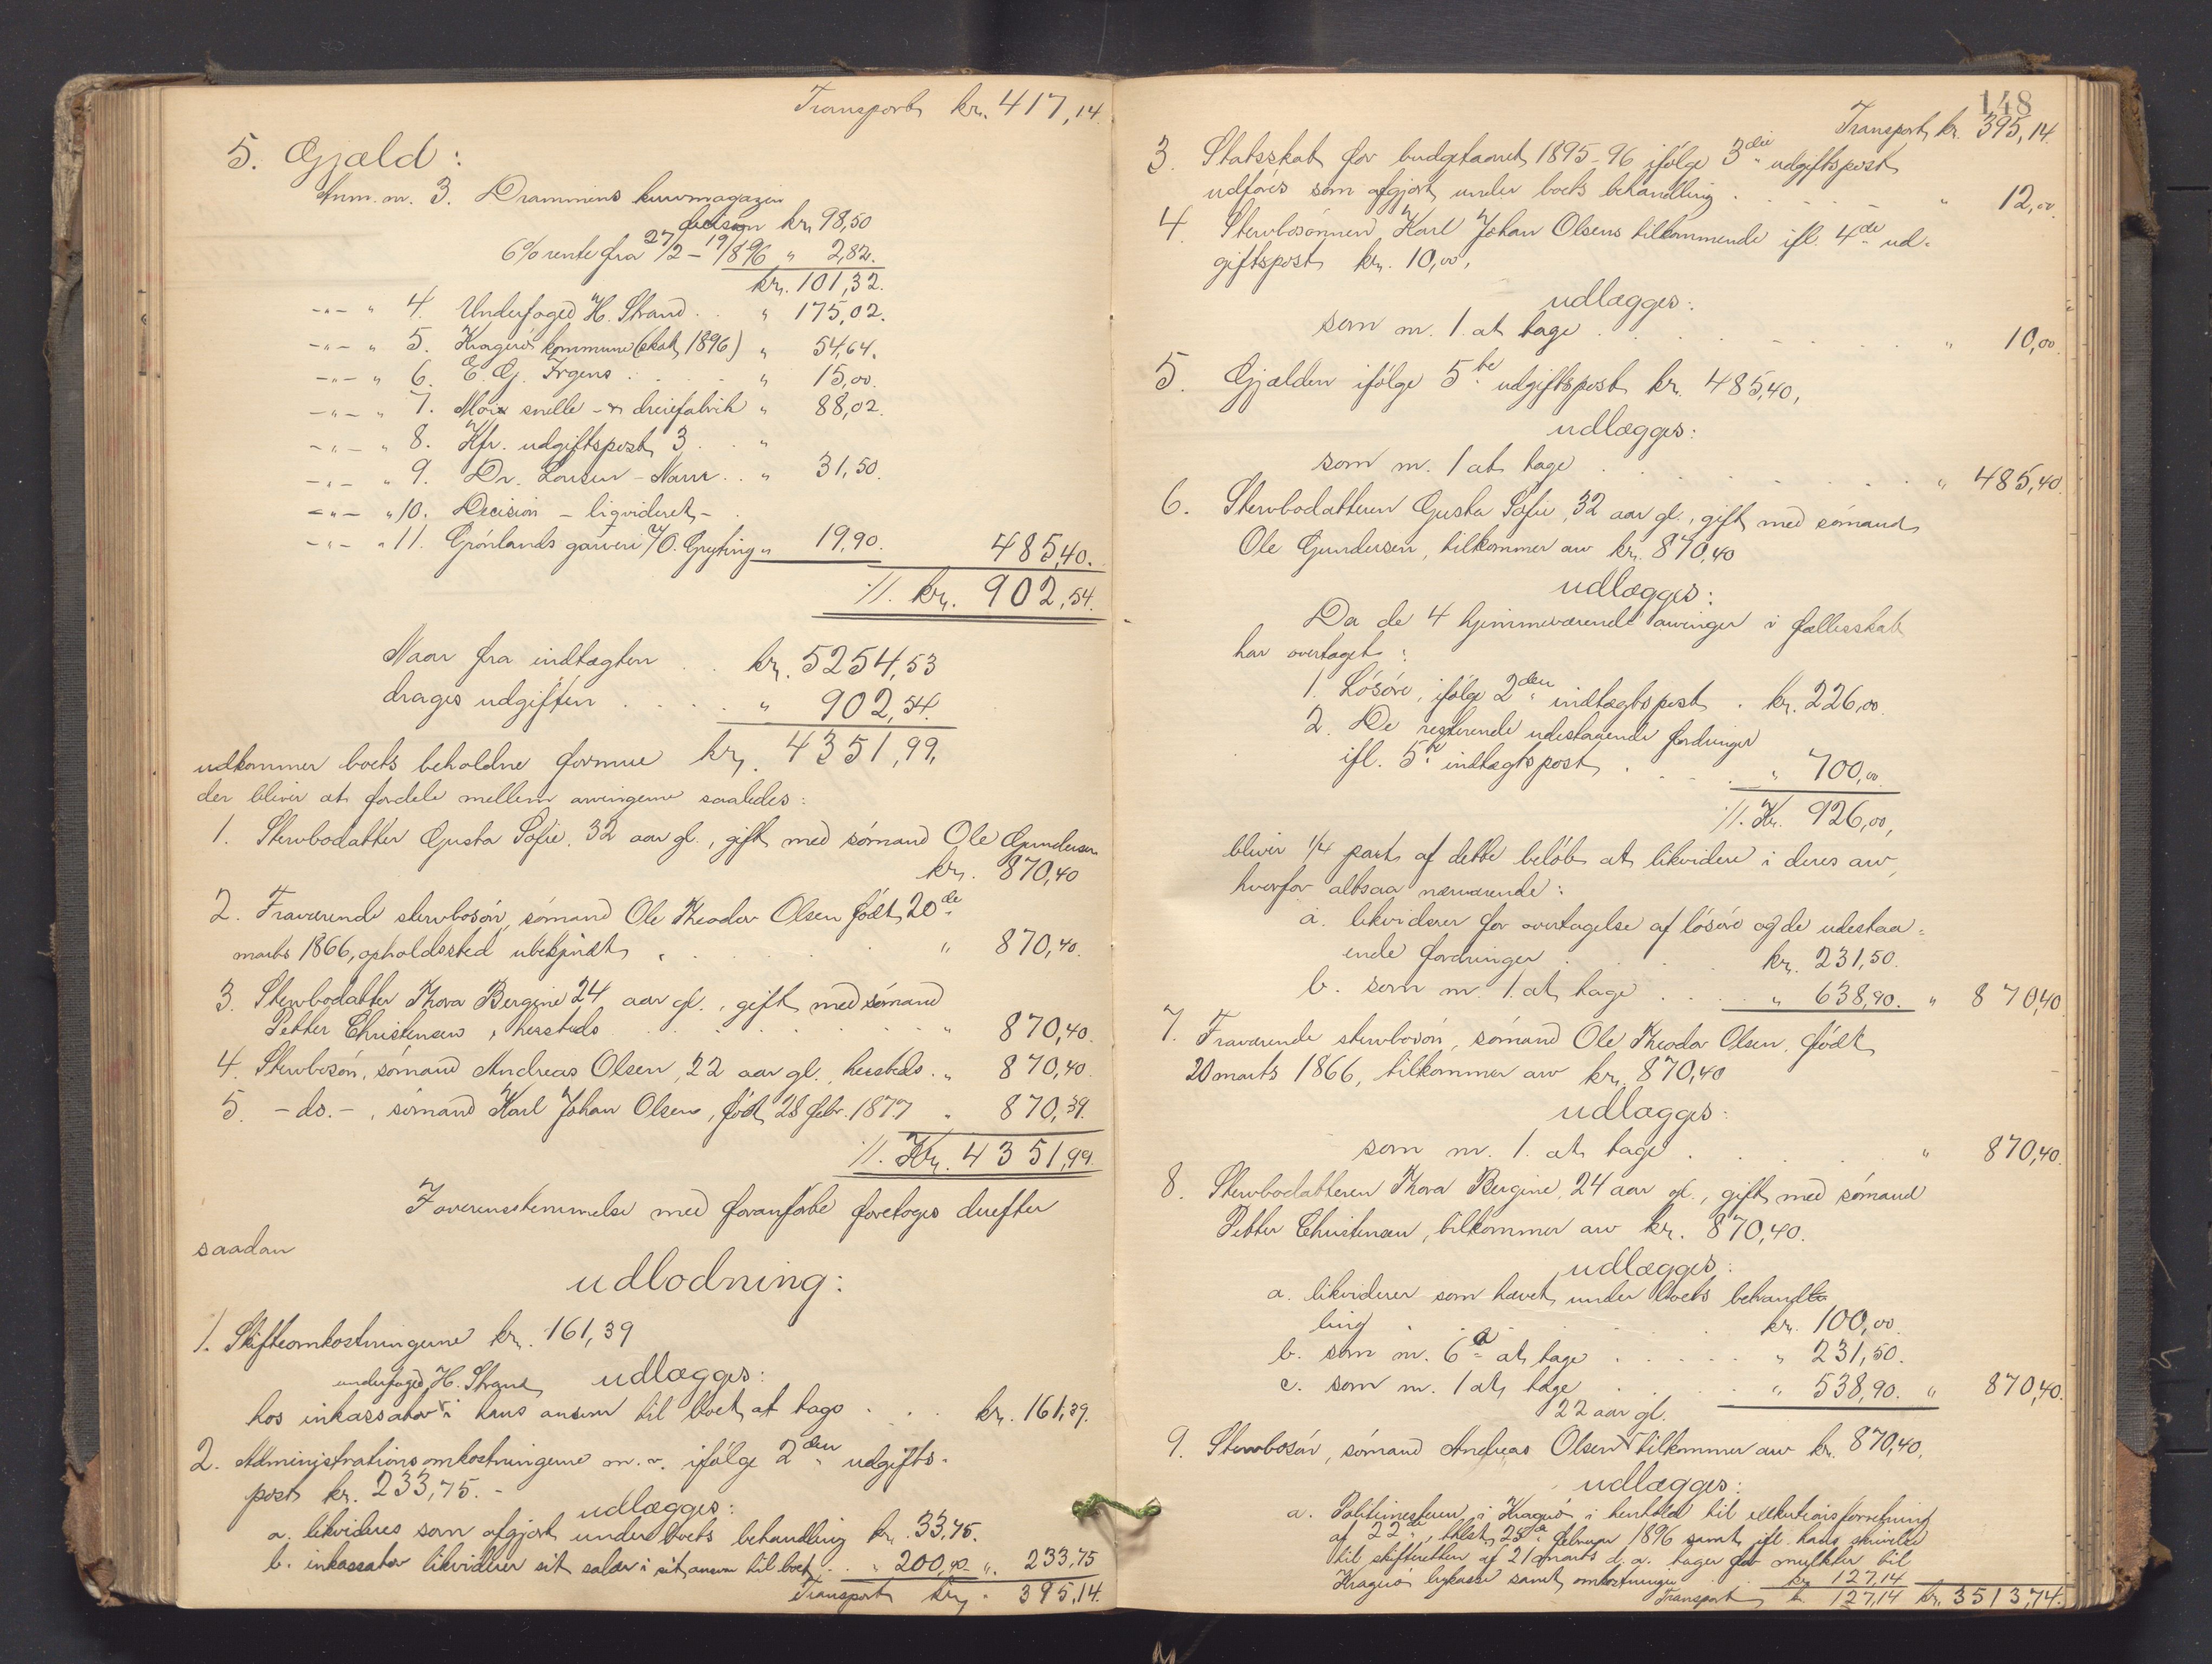 Transport kr. 417,14.
5. Gjæld:
Anm. nr. 3. Drammens kurvmagazin
decision kr. 98,50
6% rente fra 27/2 - 19/8 96 " 2,82.
kr. 101,32.
-"- " 4. Underfoged H. Strand . . " 175,02.
-"- " 5. Kragerø kommune (skat 1896) " 54,64.
-"- " 6. E. G. Irgens . . . . " 15,00.
-"- " 7. Moix snelle- & dreiefabrik " 88,02.
-"- " 8. Kfr. udgiftspost 3 . . "
-"- " 9. Dr. Larsen - Narur . . " 31,50.
-"- " 10. Decision - ligvideret -
-"- " 11. Grønlands garveri v/ O. Grefting " 19,90. 485,40.
//. kr. 902,54.
Naar fra indtægten . . kr. 5254,53
drages udgiften . . . . " 902,54.
udkommer boets beholdne formue kr. 4351,99,
der bliver at fordele mellem arvingerne saaledes:
1. Stervbodatter Gusta Sofie, 32 aar gl., gift med sømand Ole Gundersen
kr. 870,40
2. Fraværende stervbosøn, sømand Ole Theodor Olsen født 20de
marts 1866, opholdssted ubekjendt . . . " 870,40.
3. Stervbodatter Thora Bergine 24 aar gl., gift med sømand
Petter Christensen, hersteds . . . . . " 870,40.
4. Stervbosøn, sømand Andreas Olsen, 22 aar gl., hersteds . " 870,40.
5. -do.-, sømand Karl Johan Olsen, født 28 febr. 1877 " 870,39.
//. Kr. 4351,99.
I overensstemmelse med foranførte foretoges derefter
saadan
udlodning:
1. Skifteomkostningerne kr. 161,39
udlægges:
underfoged H. Strand
hos inkassator i hans ansvar til boet at tage . . . kr. 161,39.
2. Administrationsomkostningerne m. v. ifølge 2den udgifts-
post kr. 233,75. -
udlægges:
a. likvideres som afgjort under boets behandling kr. 33,75.
b. inkassator likviderer sit salær i sit ansvar til boet . . " 200,00 " 233,75
Transport kr. 395,14.
148
Transport kr. 395,14.
3. Statsskat for budgetaaret 1895-96 ifølge 3die udgiftspost
udføres som afgjort under boets behandling . . . . . " 12,00.
4. Stervbosønnen Karl Johan Olsens tilkommende ifl. 4de ud-
giftspost kr. 10,00,
udlægges:
som nr. 1 at tage . . . . . . . . " 10,00.
5. Gjælden ifølge 5te udgiftspost kr. 485,40,
udlægges:
som nr. 1 at tage . . . . . . . . " 485,40.
6. Stervbodatteren Gusta Sofie, 32 aar gl., gift med sømand
Ole Gundersen, tilkommer arv kr. 870,40
udlægges:
Da de 4 hjemmeværende arvinger i fællesskab
har overtaget:
1. Løsøre, ifølge 2den indtægtspost . kr. 226,00.
2. De resterende udestaaende fordringer
ifl. 5te indtægtspost . . . . " 700,00
//. Kr. 926,00,
bliver 1/4 part af dette beløb at likvidere i deres arv,
hvorfor altsaa nærværende:
a. likviderer for overtagelse af løsøre og de udestaa-
ende fordringer . . . . . kr. 231,50.
b. som nr. 1 at tage . . . . " 638,90. " 870,40
7. Fraværende stervbosøn, sømand Ole Theodor Olsen, født
20 marts 1866, tilkommer arv kr. 870,40
udlægges:
som nr. 1. at tage . . . . . . " 870,40.
8. Stervbodatteren Thora Bergine, 24 aar gl., gift med sømand
Petter Christensen, tilkommer arv kr. 870,40.
udlægges:
a. likviderer som hævet under boets behand
ling . . . . . . kr. 100,00.
b. som nr. 6 a at tage . . . . . " 231,50.
c. som nr. 1 at tage . . . . . " 538,90. " 870,40.
22 aar gl.
9. Stervbosøn, sømand Andreas Olsen tilkommer arv kr. 870,40,
udlægges:
a. Politimesteren i Kragerø i henhold til exekutionsforretning
af 22de, thlst. 25de februar 1896 samt ifl. hans skrivelse
til skifteretten af 21 marts d. a. tager for mulkter til
Kragerø bykasse samt omkostninger . . kr. 127,14
Transport kr. 127,14 kr. 3513,74.